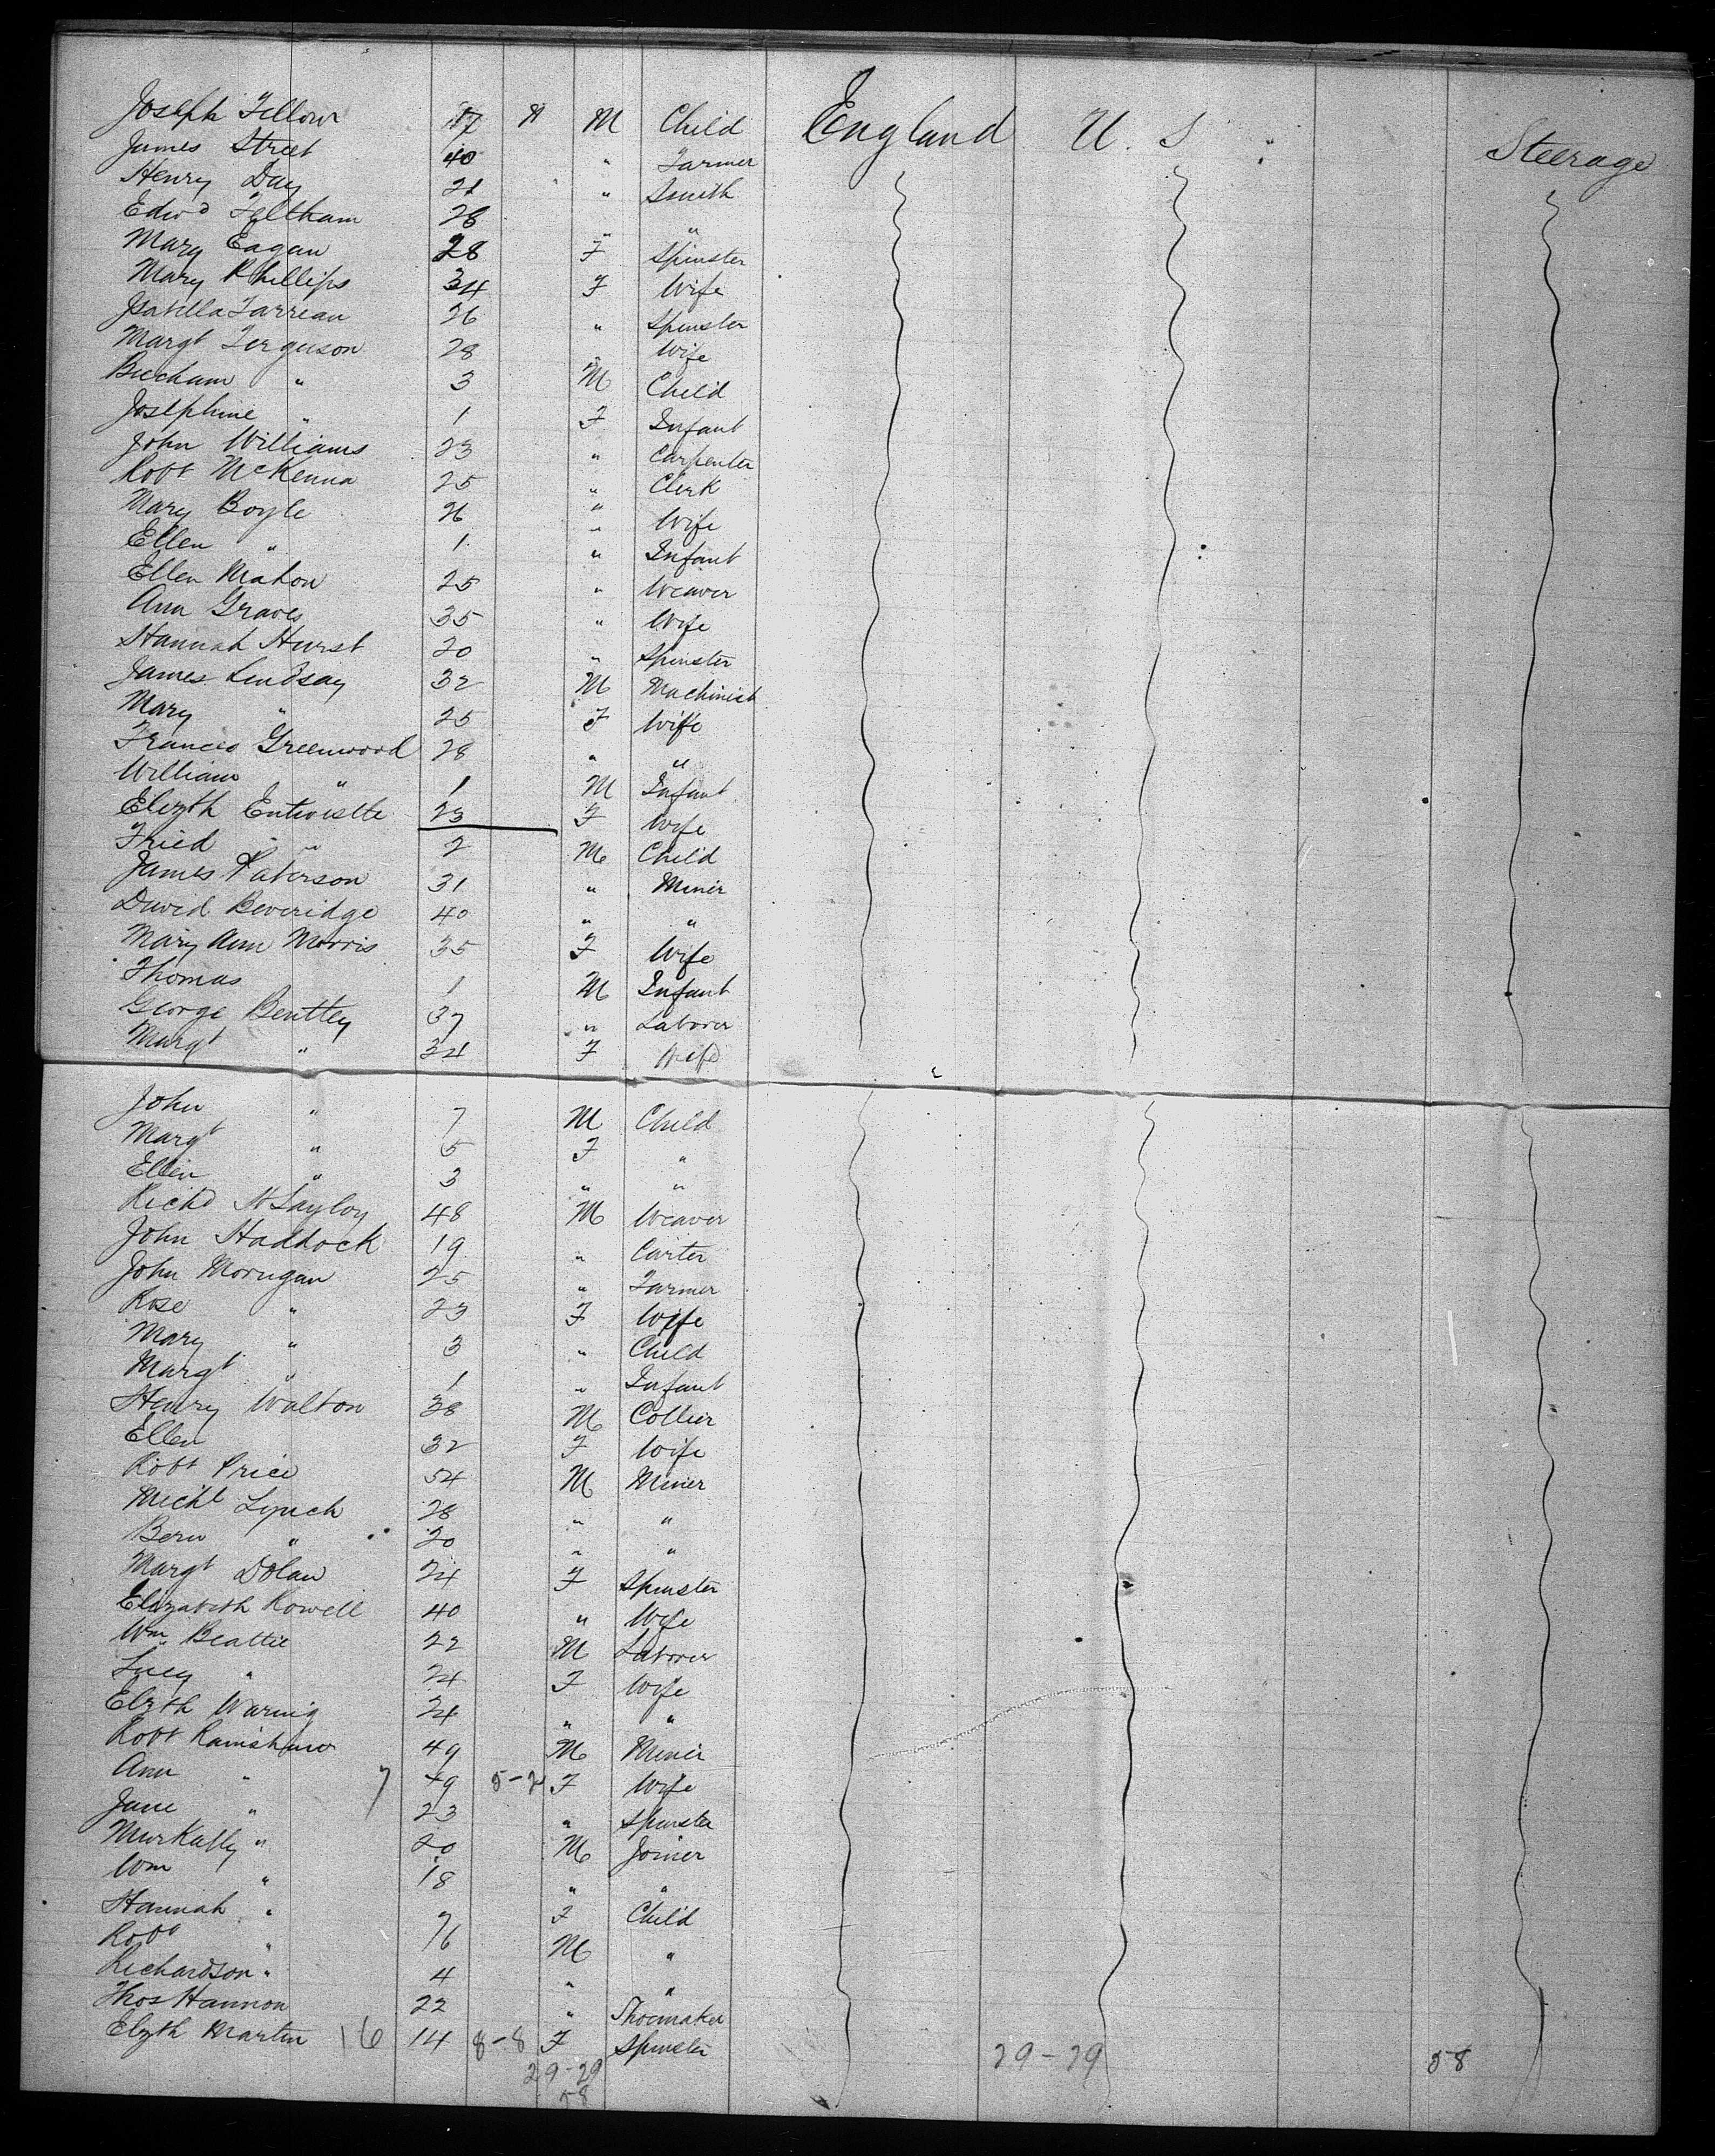 Joseph Fellow 17 M Child England U. S. Steerage
James Street 40 " Farmer
Henry Day 21 " Smith
Edwd Feltham 28 " "
Mary Eagan 28 F Spinster
Mary Phillips 34 F Wife
Isabella Farrean 26 " Spinster
Margt Ferguson 28 " Wife
Bucham " 3 M Child
Josephine " 1 F Infant
John Williams 23 " Carpenter
Robt McKenna 25 " Clerk
Mary Boyle 26 " Wife
Ellen " 1 " Infant
Ellen Mahon 25 " Weaver
Ann Graves 35 " Wife
Hannah Hurst 20 " Spinster
James Lindsay 32 M Machinist
Mary " 25 F Wife
Frances Greenwood 28 " "
William " 1 M Infant
Elizth Entwistle 23 F Wife
Fried " 2 M Child
James Paterson 31 " Miner
David Beveridge 40 " "
Mary Ann Morris 35 F Wife
Thomas 1 M Infant
George Bentley 37 " Laborer
Margt " 34 F Wife
John " 7 M Child
Margt " 5 F "
Ellen " 3 " "
Richd Naylor 48 M Weaver
John Haddock 19 " Carter
John Morrigan 25 " Farmer
Rose " 23 F Wife
Mary " 3 " Child
Margt " 1 " Infant
Henry Walton 38 M Collier
Ellen 32 F Wife
Robt Price 54 M Miner
Michl Lynch 28 " "
Bern " 20 " "
Margt Dolan 24 F Spinster
Elizabeth Rowell 40 " Wife
Wm Beattie 22 M Laborer
Lucy " 24 F Wife
Elzth Waring 24 " "
Robt Rainshaw 49 M Miner
Ann " 7 49 5-24 F Wife
Jane " 23 " Spinster
" 20 M Joiner
Wm " 18 " "
Hannah " 7 F Child
Robt " 6 M "
Richardson " 4 " "
Thos Hannon 22 " Shoemaker
Elzth Martin 16 14 8-8 F Spinster
29-29 29-29 58
58